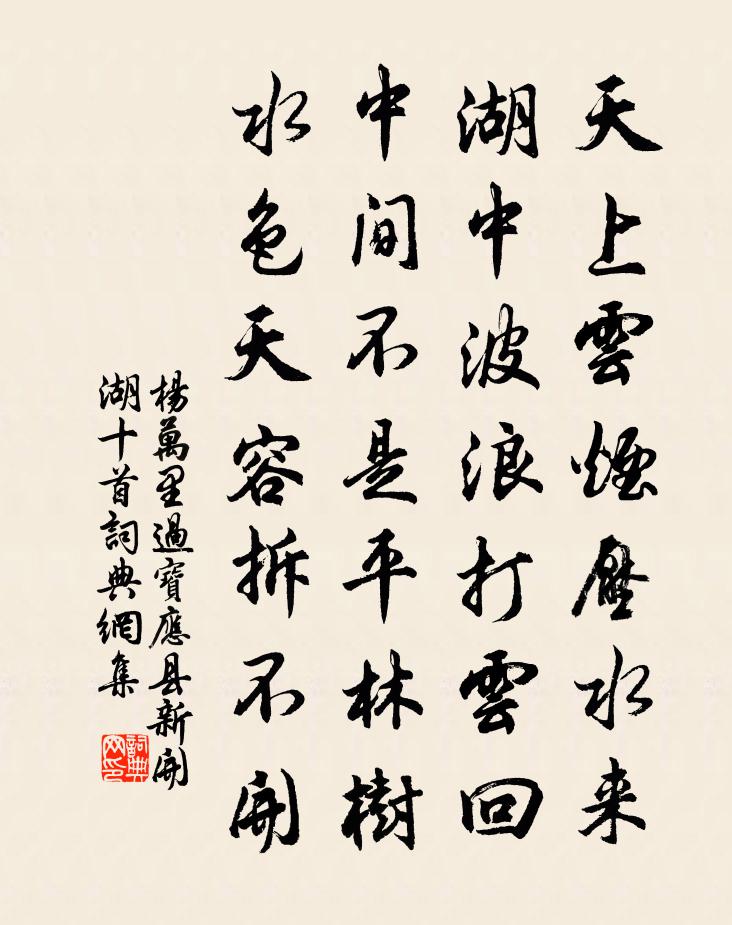 天上雲煙壓水来
湖中波浪打雲回
中间不是平林樹
水色天容拆不開
楊萬里過寶應县新開
湖十首詞典網集
詞典
网印